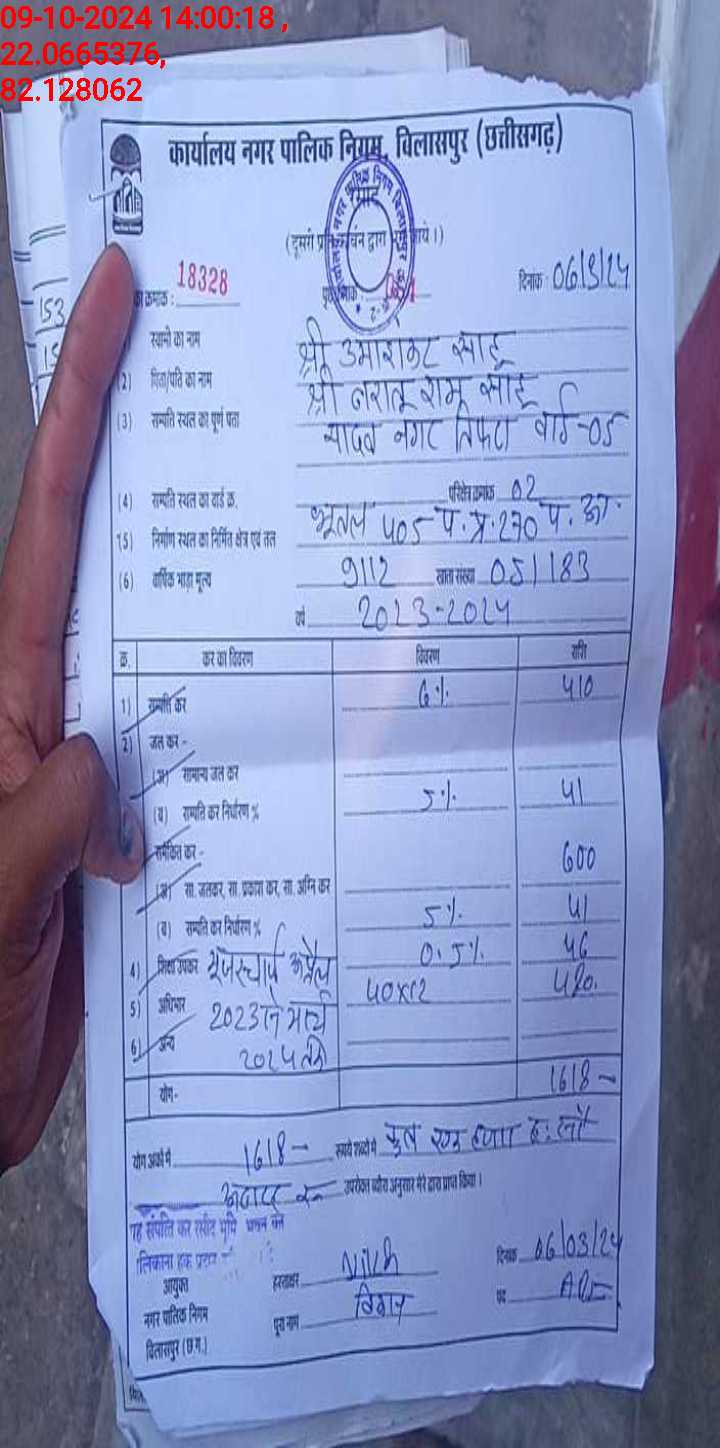 09-10-2024 14:00:18 ,
22.0665376,
82.128062
कार्यालय नगर पालिक निगम, बिलासपुर (छत्तीसगढ़)
(दूसरी
18328
दिनांक : 06/3/24
स्वामी का नाम श्री उमाशंकर साहू
(2) पिता/पति का नाम श्री राम साहू
(3) सम्पत्ति स्थल का पूर्ण पता यादव नगर तिफरा वार्ड-05
(4) सम्पत्ति स्थल का वार्ड क्र. परिक्षेत्र क्रमांक 02
(5) निर्माण स्थल का निर्मित क्षेत्र एवं तल भूतल 405 प.
(6) वार्षिक भाड़ा मूल्य 9112 खाता संख्या 051183
वर्ष 2023-2024
क्र. कर का विवरण विवरण राशि
1) सम्पत्ति कर 6% 410
2) जल कर -
(अ) सामान्य जल कर
(ब) सम्पत्ति कर निर्धारण % 5% 41
समेकित कर - 600
(अ) सा. जलकर, सा. प्रकाश कर, सा. अग्नि कर
(ब) सम्पत्ति कर निर्धारण % 5% 41
4) शिक्षा उपकर यूजरचार्ज अप्रैल 0.5% 46
5) अधिभार 2023 से मार्च 40x12 480.
6) अन्य 2024 तक
योग- 1618-
योग अंकों में 1618- रूपये शब्दों में कुल एक हजार छः सौ
अठारह रू उपरोक्त ब्यौरा अनुसार मेरे द्वारा प्राप्त किया।
यह संपत्ति कर रसीद भूमि भवन का
मालिकाना हक
आयुक्त हस्ताक्षर दिनांक 06/03/24
नगर पालिक निगम पूरा नाम पद
बिलासपुर (छ.ग.)